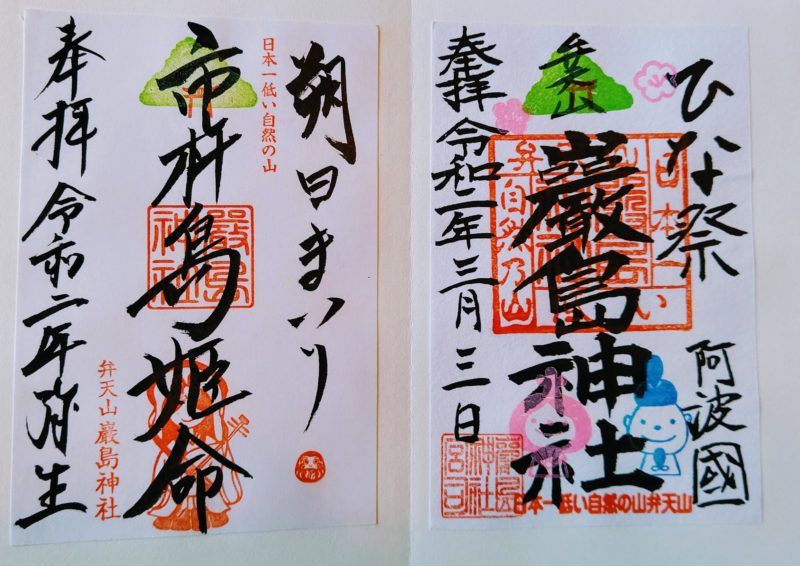 ひな祭
阿波國
弁天山
巖島神社
奉拝 令和二年三月三日
日本一低い自然の山弁天山
朔日まいり
日本一低い自然の山
市杵島姫命
嚴島神社
弁天山 嚴島神社
奉拝 令和二年弥生